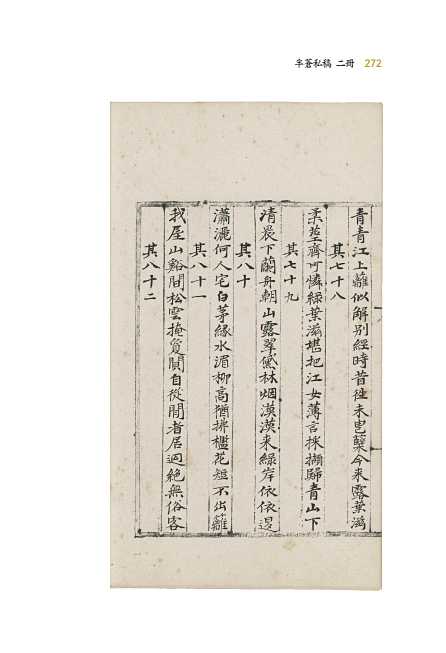 半蒼私稿 二冊 272
青青江上蘺似解別經時昔徃未患蘖今来露葉滿
其七十八
柔莖齊可憐緑葉滋堪把江女薄言採擷歸青山下
其七十九
清晨下蘭舟朝山露翠黛林烟漠漠来緑岸依依邊
其八十
瀟灑何人宅白茅緣水湄柳高猶拂檻花短不出籬
其八十一
我屋山谿間松雲掩負闃自從閒者居迥絶無俗客
其八十二